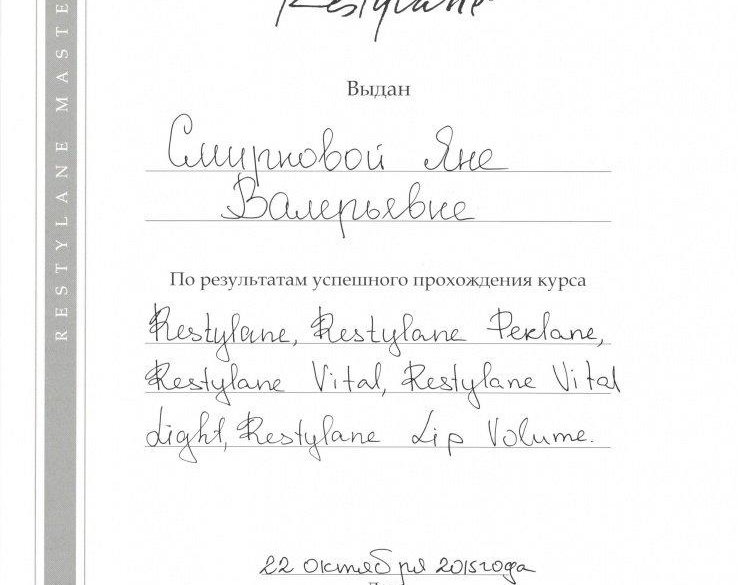 Restylane
Выдан
Смирновой Яне
Валерьевне
По результатам успешного прохождения курса
Restylane, Restylane Perlane,
Restylane Vital, Restylane Vital
Light, Restylane Lip Volume.
22 октября 2015 года
RESTYLANE MASTE